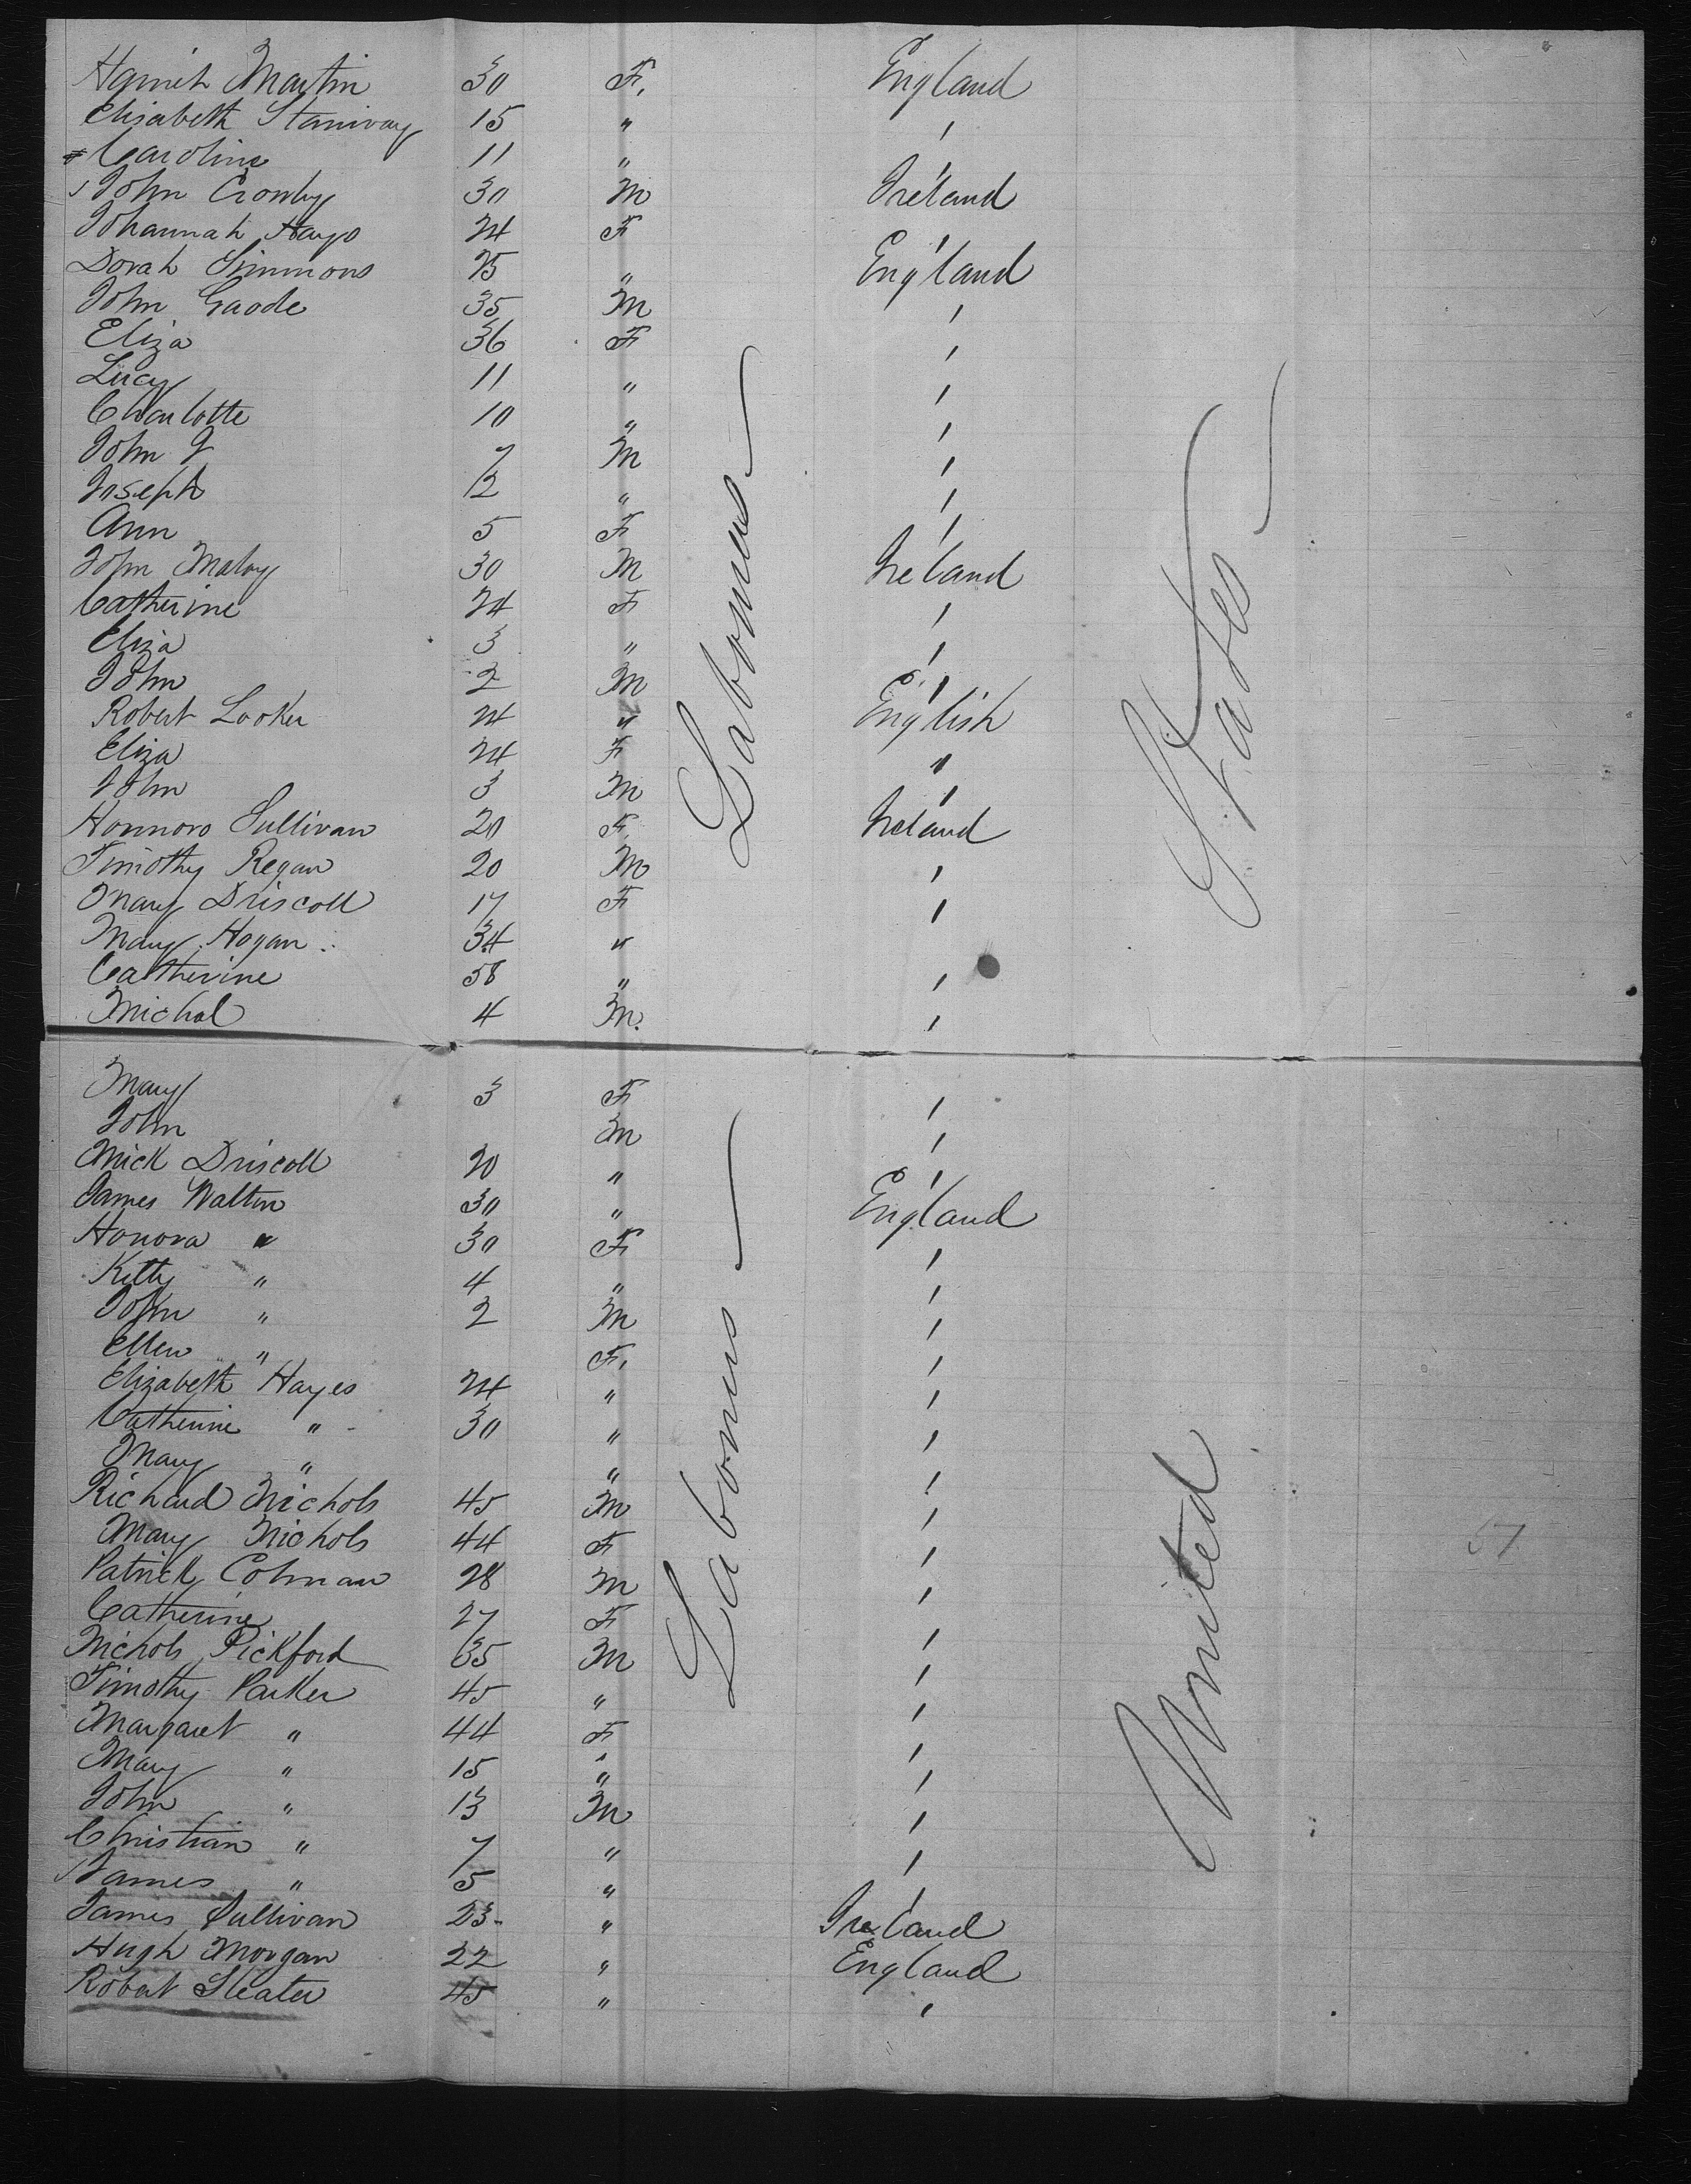 Martin 30 F. England
Elisabeth Staniway 15 " '
Caroline 11 " '
John Cronly 30 M Ireland
Johannah Hays 24 F '
Dorah Simmons 25 " England
John Gaode 35 M '
Eliza 36 F '
Lucy 11 " '
Charlotte 10 " '
John J 7 M '
Joseph 12 " '
Ann 5 F '
John Maloy 30 M Ireland
Catherine 24 F '
Eliza 3 " '
John 2 M '
Robert Looker 24 " English
Eliza 24 F "
John 3 M '
Honnoro Sullivan 20 F. Ireland
Timothy Regan 20 M '
Mary Driscoll 17 F '
Mary Hogan 34 "
Catherine 58 " '
Michal 4 M. '
Labourers
States
Mary 3 F '
John M '
Mick Driscoll 20 " '
James Walton 30 " England
Honora " 30 F '
Kitty " 4 " '
John " 2 M '
Ellen " F. '
Elizabeth Hayes 24 " '
Catherine " 30 " '
Mary " " '
Richard Nichols 45 M '
Mary Nichols 44 F '
Patrick Colman 28 M '
Catherine 27 F '
Nichols Pickford 35 M '
Timothy Parker 45 " '
Margaret " 44 F '
Mary " 15 " '
John " 13 M '
Christian " 7 " '
James " 5 " '
James Sullivan 23 " Ireland
Hugh Morgan 22 " England
Robert Sleater 45 " '
Labourers
United
57